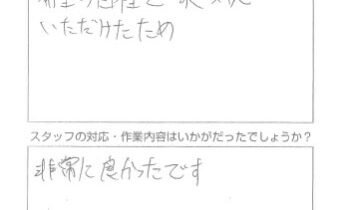 いただけたため
スタッフの対応・作業内容はいかがだったでしょうか?
非常に良かったです